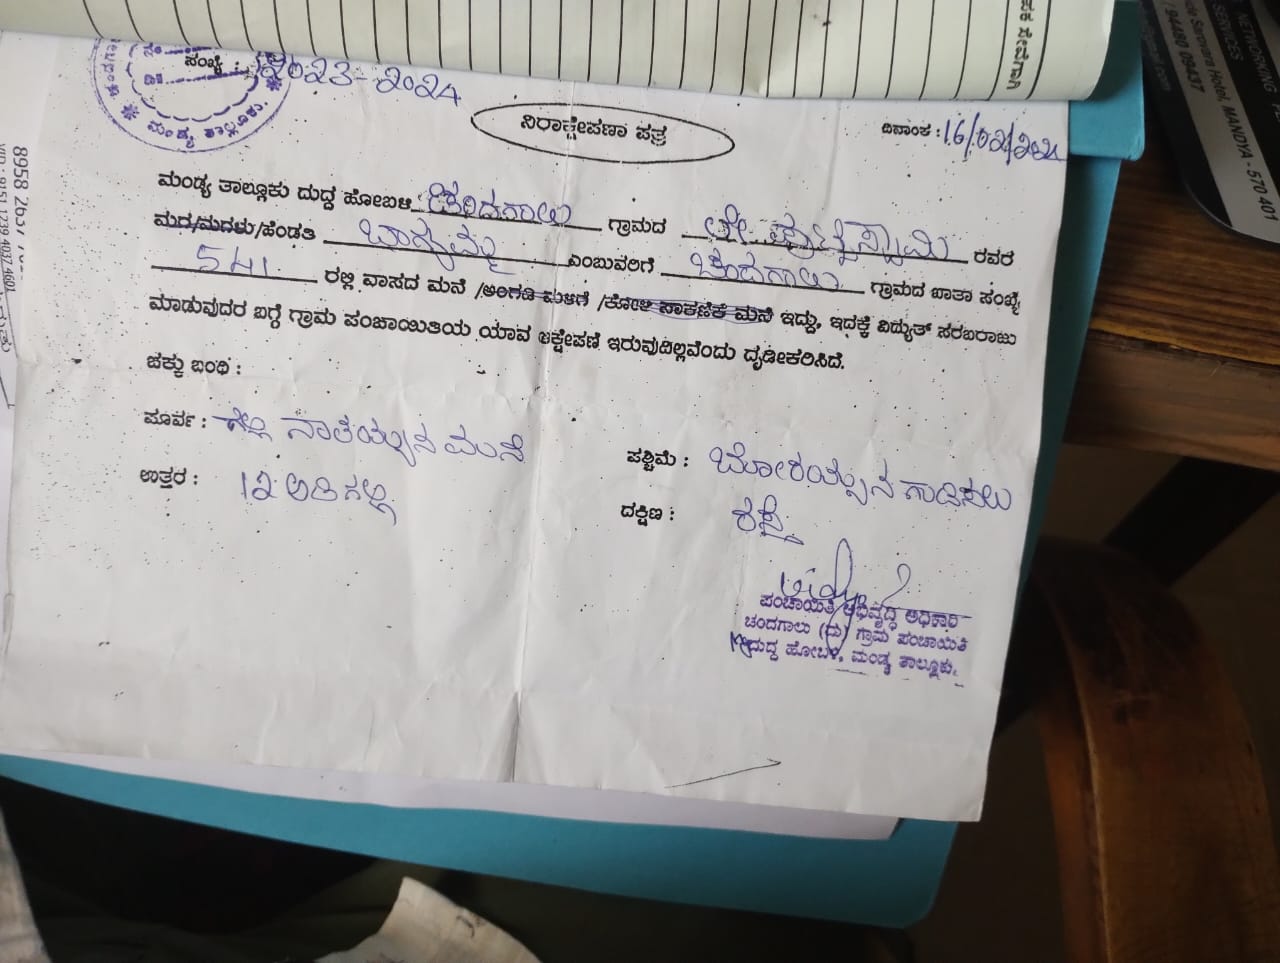 ಸಂಖ್ಯೆ : 2023-2024
ಮಂಡ್ಯ ತಾಲ್ಲೂಕು.
ದಿನಾಂಕ : 16/02/202
ನಿರಾಕ್ಷೇಪಣಾ ಪತ್ರ
ಮಂಡ್ಯ ತಾಲ್ಲೂಕು ದುದ್ದ ಹೋಬಳಿ ಚಂದಗಾಲು ಗ್ರಾಮದ ಲೇ. ಪುಟ್ಟಸ್ವಾಮಿ ರವರ
ಮಗ/ಮಗಳು/ಹೆಂಡತಿ ಭಾಗ್ಯಮ್ಮ ಎಂಬುವರಿಗೆ ಚಂದಗಾಲು ಗ್ರಾಮದ ಖಾತಾ ಸಂಖ್ಯೆ
541 ರಲ್ಲಿ ವಾಸದ ಮನೆ /ಅಂಗಡಿ ಮಳಿಗೆ /ಕೋಳಿ ಸಾಕಣಿಕೆ ಮನೆ ಇದ್ದು, ಇದಕ್ಕೆ ವಿದ್ಯುತ್ ಸರಬರಾಜು
ಮಾಡುವುದರ ಬಗ್ಗೆ ಗ್ರಾಮ ಪಂಚಾಯಿತಿಯ ಯಾವ ಆಕ್ಷೇಪಣೆ ಇರುವುದಿಲ್ಲವೆಂದು ದೃಢೀಕರಿಸಿದೆ.
ಚಕ್ಕು ಬಂಧಿ :
ಪೂರ್ವ : ಮನೆ
ಪಶ್ಚಿಮ : ಬೋರಯ್ಯನ
ಉತ್ತರ : 12 ಅಡಿ ಗಲ್ಲಿ
ದಕ್ಷಿಣ : ರಸ್ತೆ
ಪಂಚಾಯಿತಿ ಅಭಿವೃದ್ಧಿ ಅಧಿಕಾರಿ
ಚಂದಗಾಲು (ದು) ಗ್ರಾಮ ಪಂಚಾಯಿತಿ
ದುದ್ದ ಹೋಬಳಿ, ಮಂಡ್ಯ ತಾಲ್ಲೂಕು.
NETWORKING
SERVICES
Hotel, MANDYA - 570 401
94480 09437